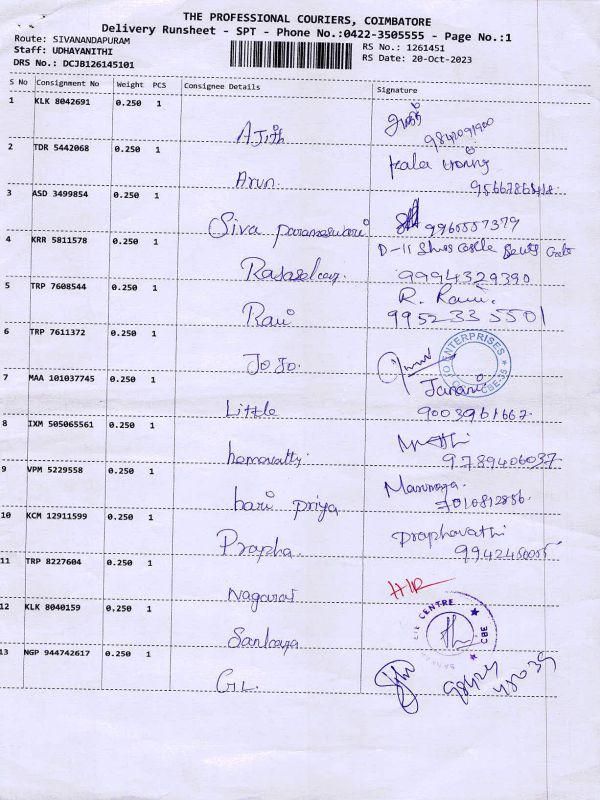 THE PROFESSIONAL COURIERS, COIMBATORE
Delivery Runsheet - SPT - Phone No.:0422-3505555 - Page No.:1
Route: SIVANANDAPURAM
RS No.: 1261451
Staff: UDHAYANITHI
RS Date: 20-Oct-2023
DRS No.: DCJB126145101
S No Consignment No Weight PCS Consignee Details Signature
1 KLK 8042691 0.250 1
Ajith 9842091900
2 TDR 5442068 0.250 1
Arun
3 ASD 3499854 0.250 1
Siva parameswari 9960557379
4 KRR 5811578 0.250 1
D-11
9994329390
5 TRP 7608544 0.250 1
Ravi R. Ravi.
9952335501
6 TRP 7611372 0.250 1
JoJo. ENTERPRISES
7 MAA 101037745 0.250 1
Janani
Little 9003961667.
8 IXM 505065561 0.250 1
hemavathy. 9789406037
9 VPM 5229558 0.250 1
hari priya 7010812856.
10 KCM 12911599 0.250 1
Praphavathi
Prapha 9942450055
11 TRP 8227604 0.250 1
Nagaraj
12 KLK 8040159 0.250 1
CENTRE CBE
13 NGP 944742617 0.250 1
G.L.